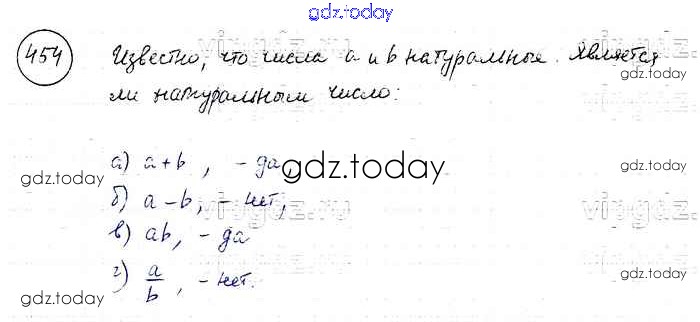 gdz.today
454 Известно, что числа a и b натуральные. Является
ли натуральным число:
а) a+b, - да,
gdz.today
gdz.today
gdz.today
б) a-b, - нет,
в) ab, - да
г) a/b, - нет.
gdz.today
gdz.today